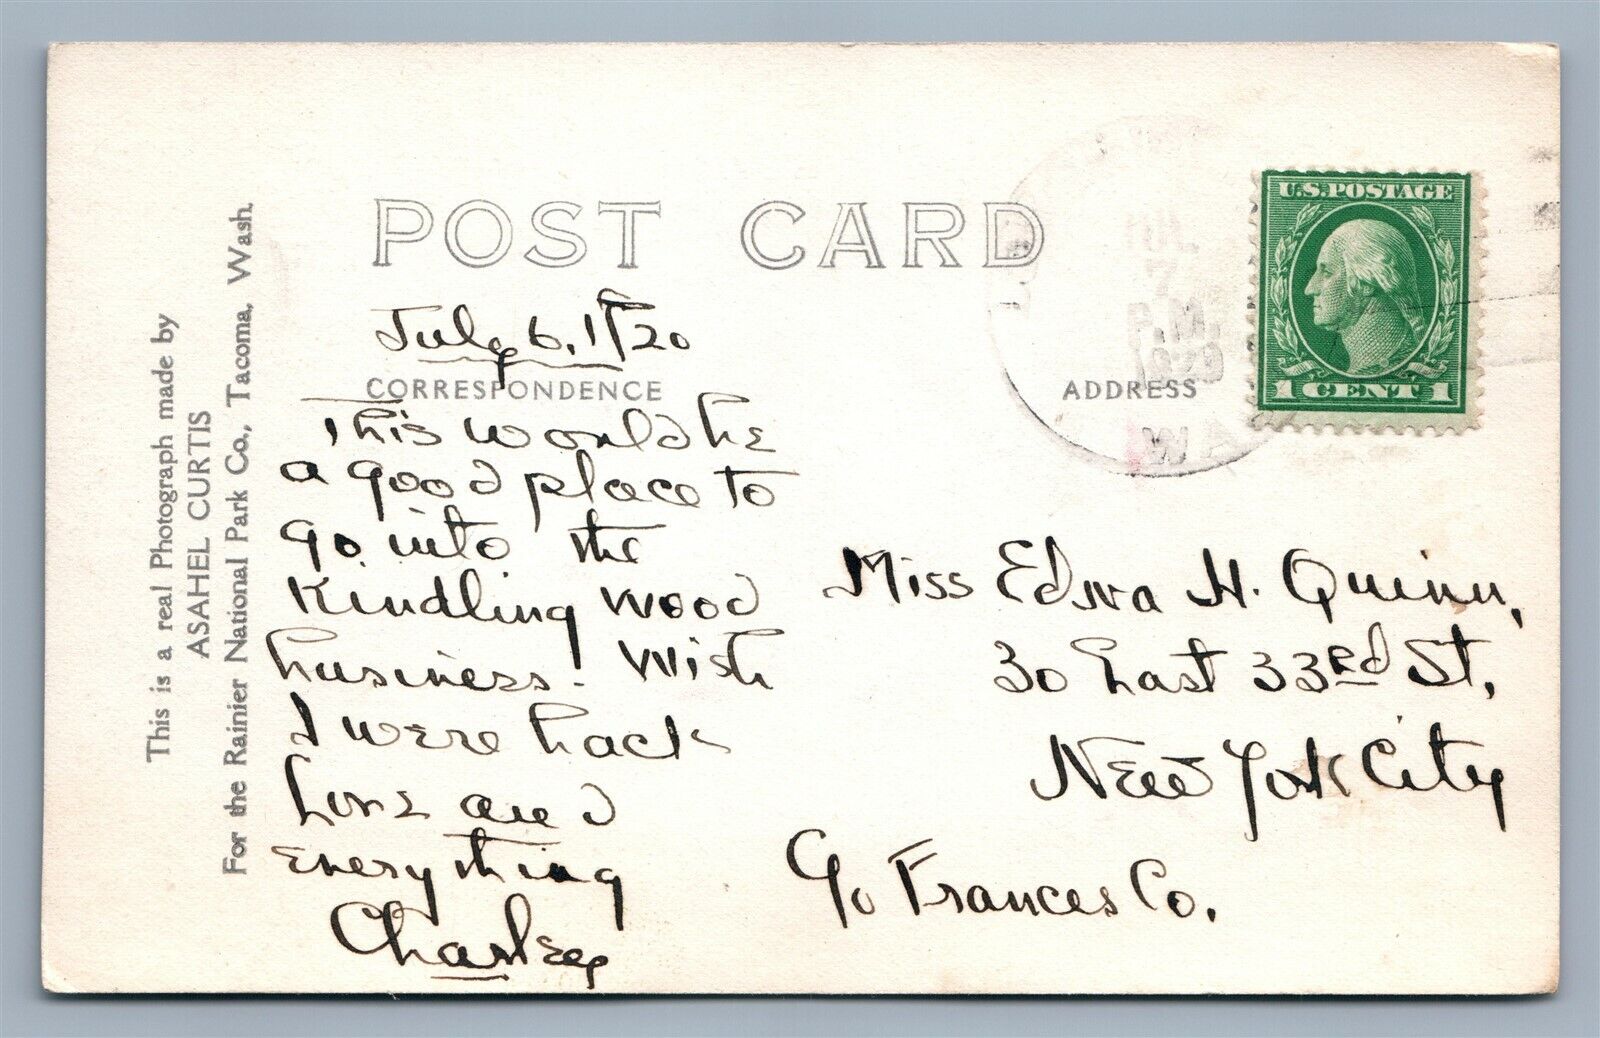 This is a real Photograph made by
ASAHEL CURTIS
For the Rainier National Park Co., Tacoma, Wash.
POST CARD
July 6, 1920
CORRESPONDENCE
This would be
a good place to
go into the
Kindling wood
business! Wish
I were back
Love and
everything
Charley
ADDRESS
U.S. POSTAGE
1 CENT 1
JUL
7
P.M.
1920
WA
Miss Edna H. Quinn,
30 East 33rd St,
New York City
c/o Frances Co.